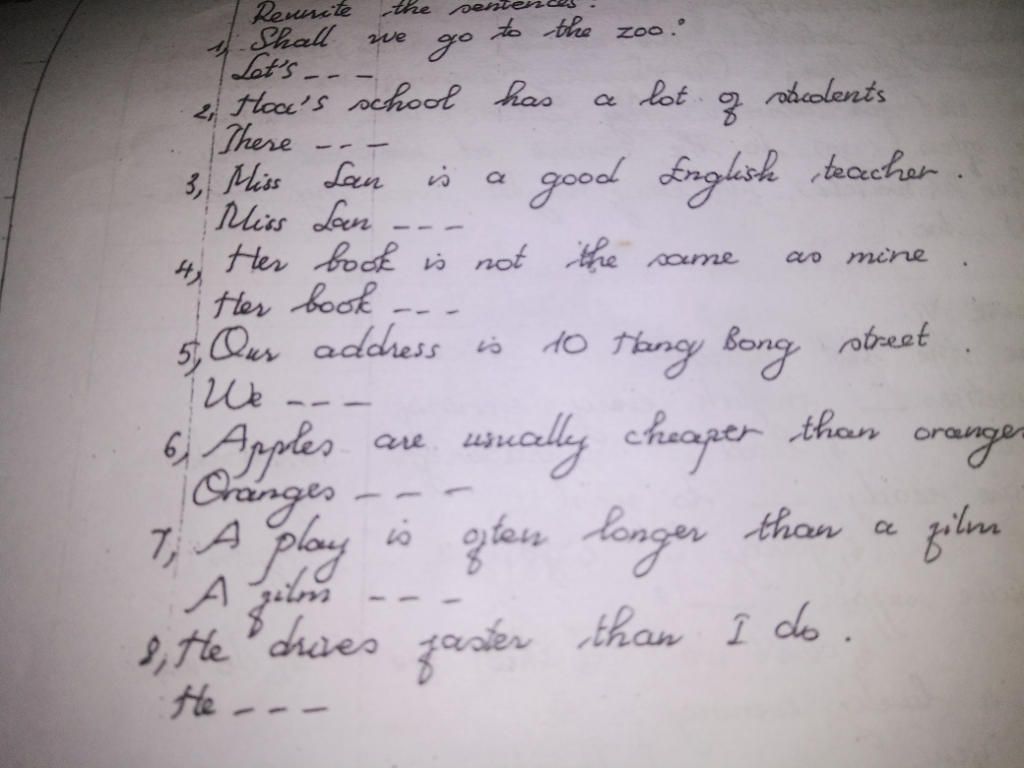 Rewrite the sentences:
1, Shall we go to the zoo?
Let's ---
2, Hoa's school has a lot of students
There ---
3, Miss Lan is a good English teacher.
Miss Lan ---
4, Her book is not the same as mine.
Her book ---
5, Our address is 10 Hang Bong street.
We ---
6, Apples are usually cheaper than oranges
Oranges ---
7, A play is often longer than a film
A film ---
8, He drives faster than I do.
He ---